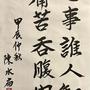 事誰人
痛苦吞腹
甲辰仲秋
陳水扁